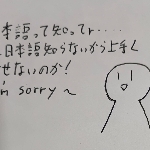 本語って知ってr‥‥
日本語知らないから上手く
せないのか！
m sorry ~